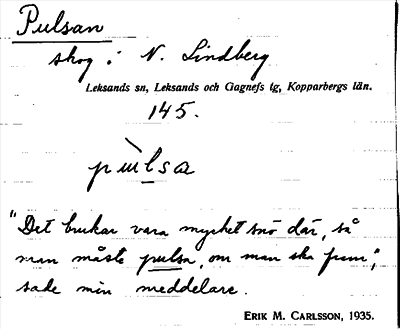 Pulsan
skog i N. Lindberg
Leksands sn, Leksands och Gagnefs tg, Kopparbergs län.
145.
pulsa
"Det brukar vara mycket snö där, så
man måste pulsa, om man ska fram",
sade min meddelare.
ERIK M. CARLSSON, 1935.